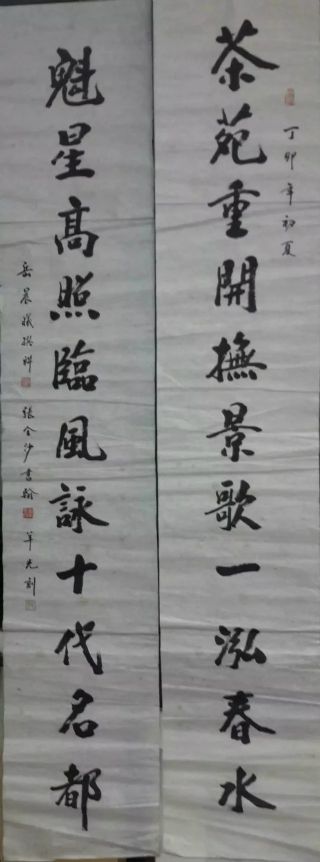 丁卯年初夏
茶苑重開撫景歌一泓春水
魁星高照臨風詠十代名都
岳晨曦撰聯 張金沙書 光刻